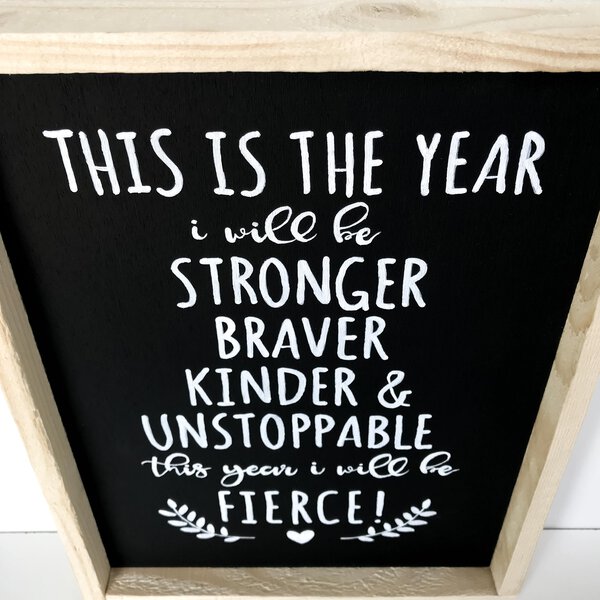 THIS IS THE YEAR
i will be
STRONGER
BRAVER
KINDER &
UNSTOPPABLE
this year i will be
FIERCE!